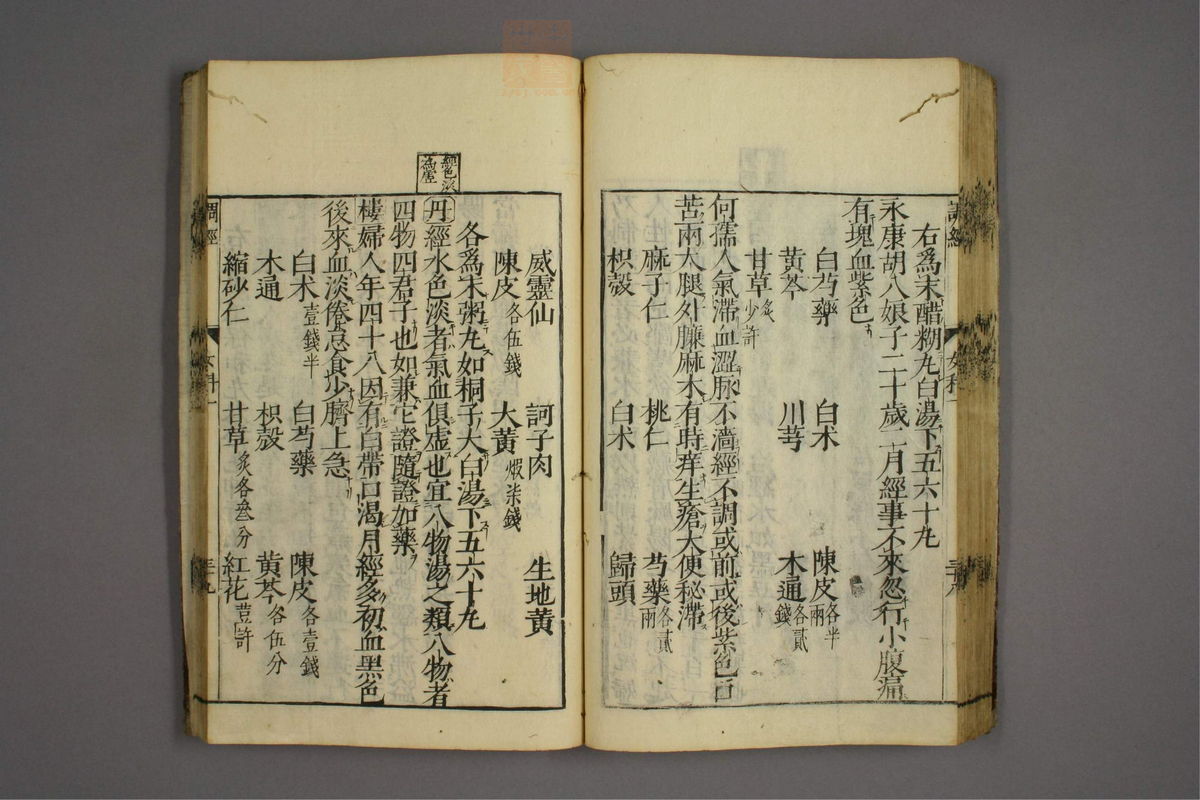 調經
女科一
三十八
右爲末醋糊丸白湯下五六十丸
永康胡八娘子二十歲二月經事不來忽行小腹痛
有塊血紫色
白芍藥 白术 陳皮各半兩
黃芩 川芎 木通各貳錢
甘草炙少許
何孺人氣滯血澀脉不澑經不調或前或後紫色口
苦兩大腿外臁麻木有時痒生瘡大便秘滯
麻子仁 桃仁 芍藥各貳兩
枳殼 白术 歸頭
威靈仙 訶子肉 生地黃
陳皮各伍錢 大黃煅柒錢
各爲末粥丸如桐子大白湯下五六十丸
經色淡爲虛
丹經水色淡者氣血俱虛也宜八物湯之類八物者
四物四君子也如兼它證隨證加藥
樓婦人年四十八因有白帶口渴月經多初血黑色
後來血淡倦怠食少臍上急
白术壹錢半 白芍藥 陳皮各壹錢
木通 枳殼 黃芩各伍分
縮砂仁 甘草炙各叁分 紅花荳許
調經
女科一
三十九